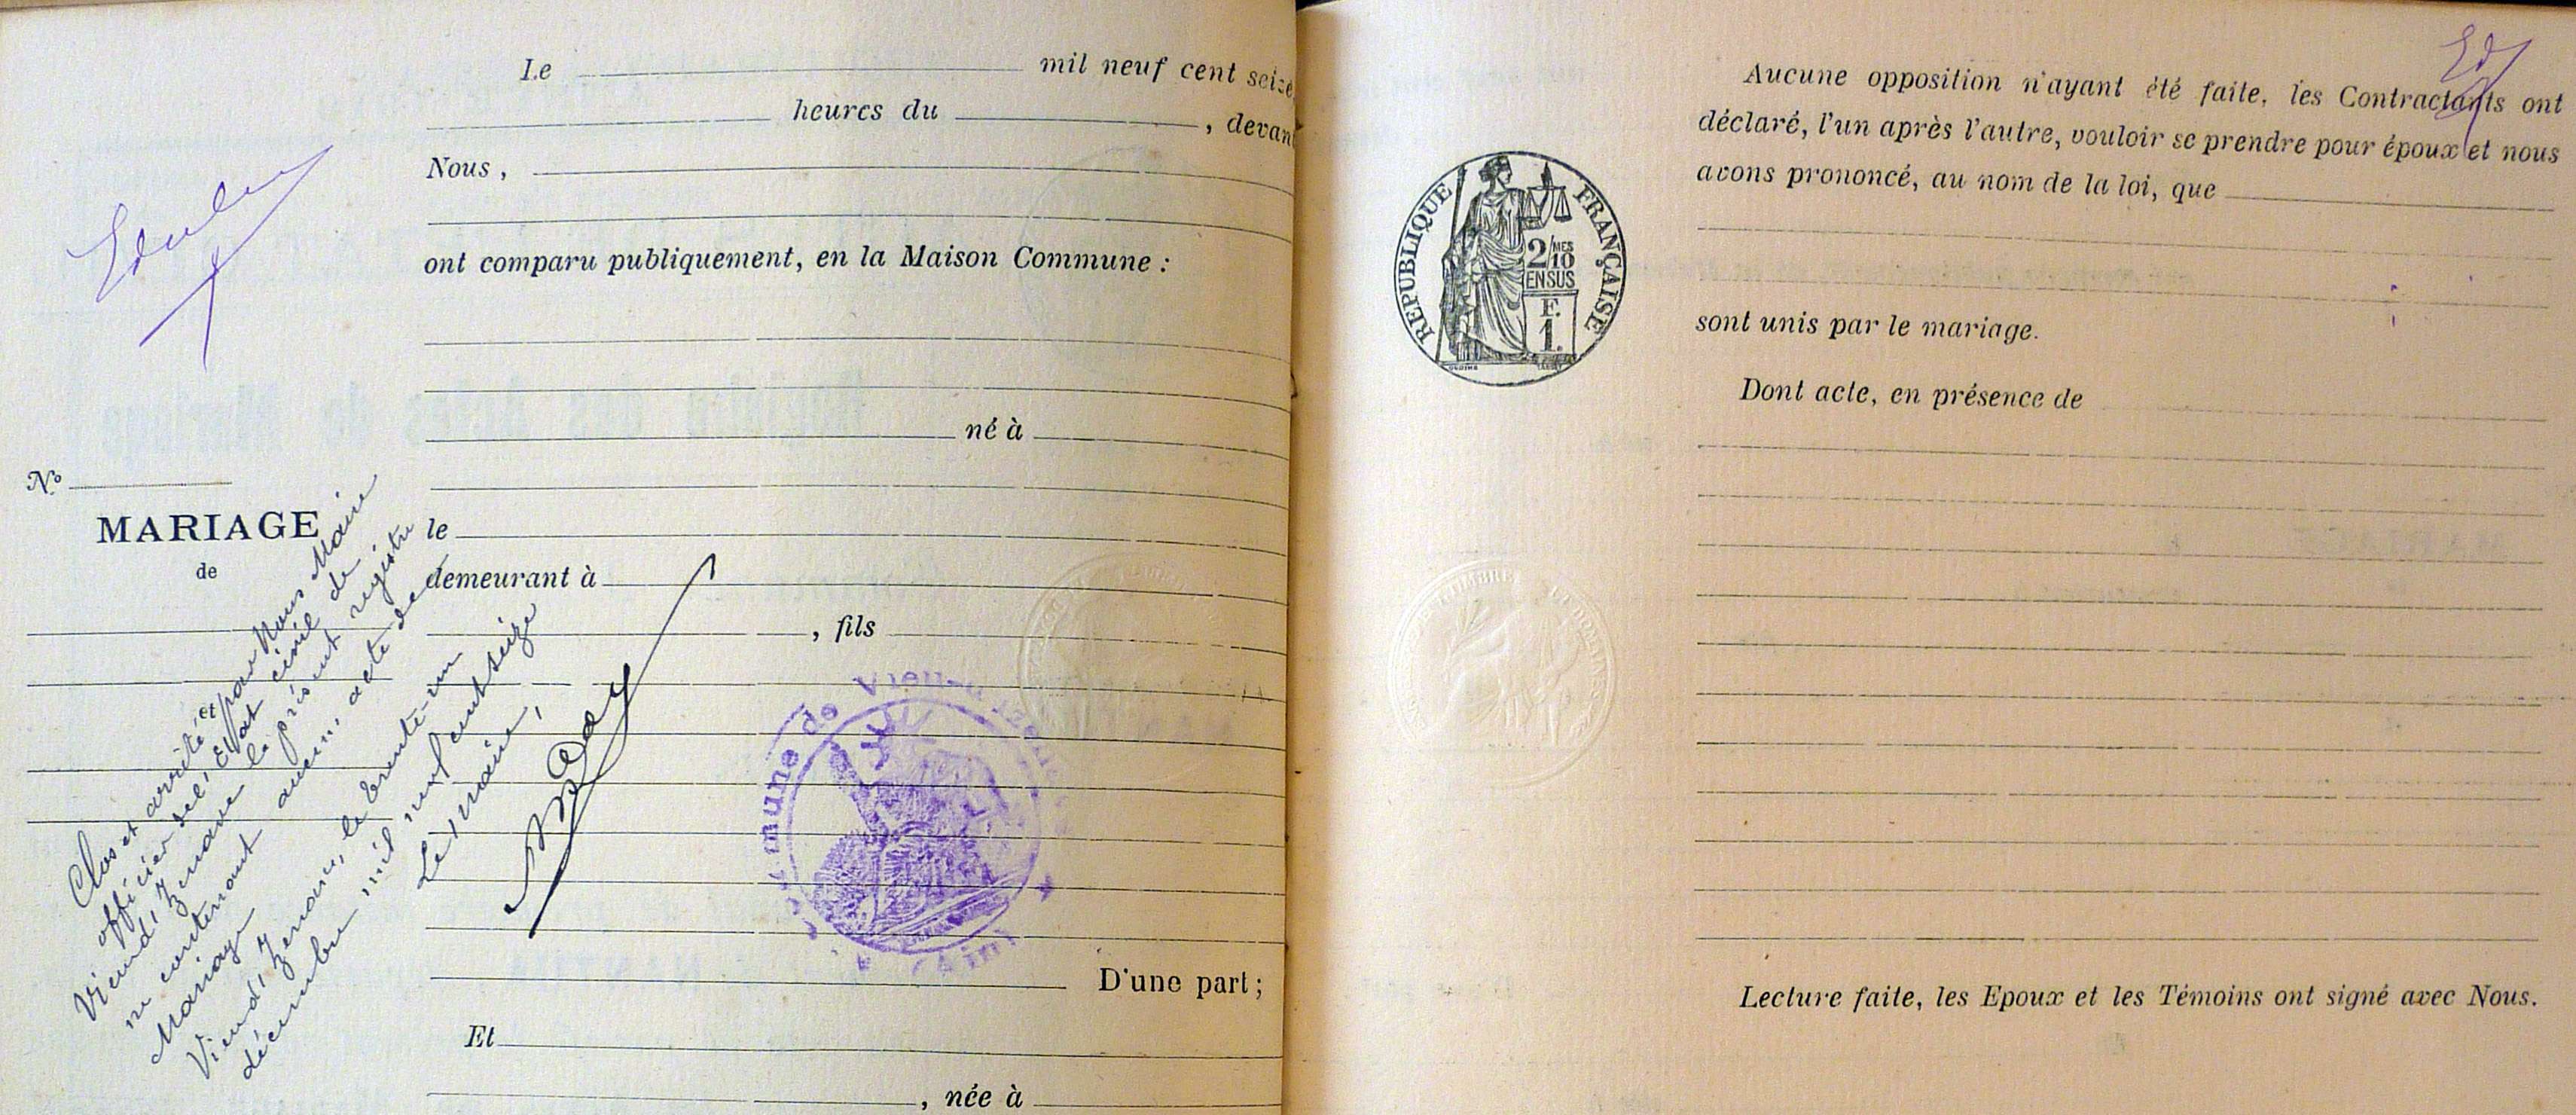 Le mil neuf cent seize
heures du , devant
Nous ,
ont comparu publiquement, en la Maison Commune :
né à
le
demeurant à
, fils
D'une part ;
Et
, née à
No
MARIAGE
de
et
Clos et arrêté par Nous Maire
officier de l'Etat civil de
Vieu d'Izenave le présent registre
ne contenant aucun acte de
Mariage
Vieu d'Izenave, le trente-un
décembre mil neuf cent seize
Le Maire,
Commune de Vieu-d'Izenave
(Ain)
Aucune opposition n'ayant été faite, les Contractants ont
déclaré, l'un après l'autre, vouloir se prendre pour époux et nous
avons prononcé, au nom de la loi, que
sont unis par le mariage.
Dont acte, en présence de
Lecture faite, les Epoux et les Témoins ont signé avec Nous.
REPUBLIQUE FRANÇAISE
2/10 MES
EN SUS
F.
1.